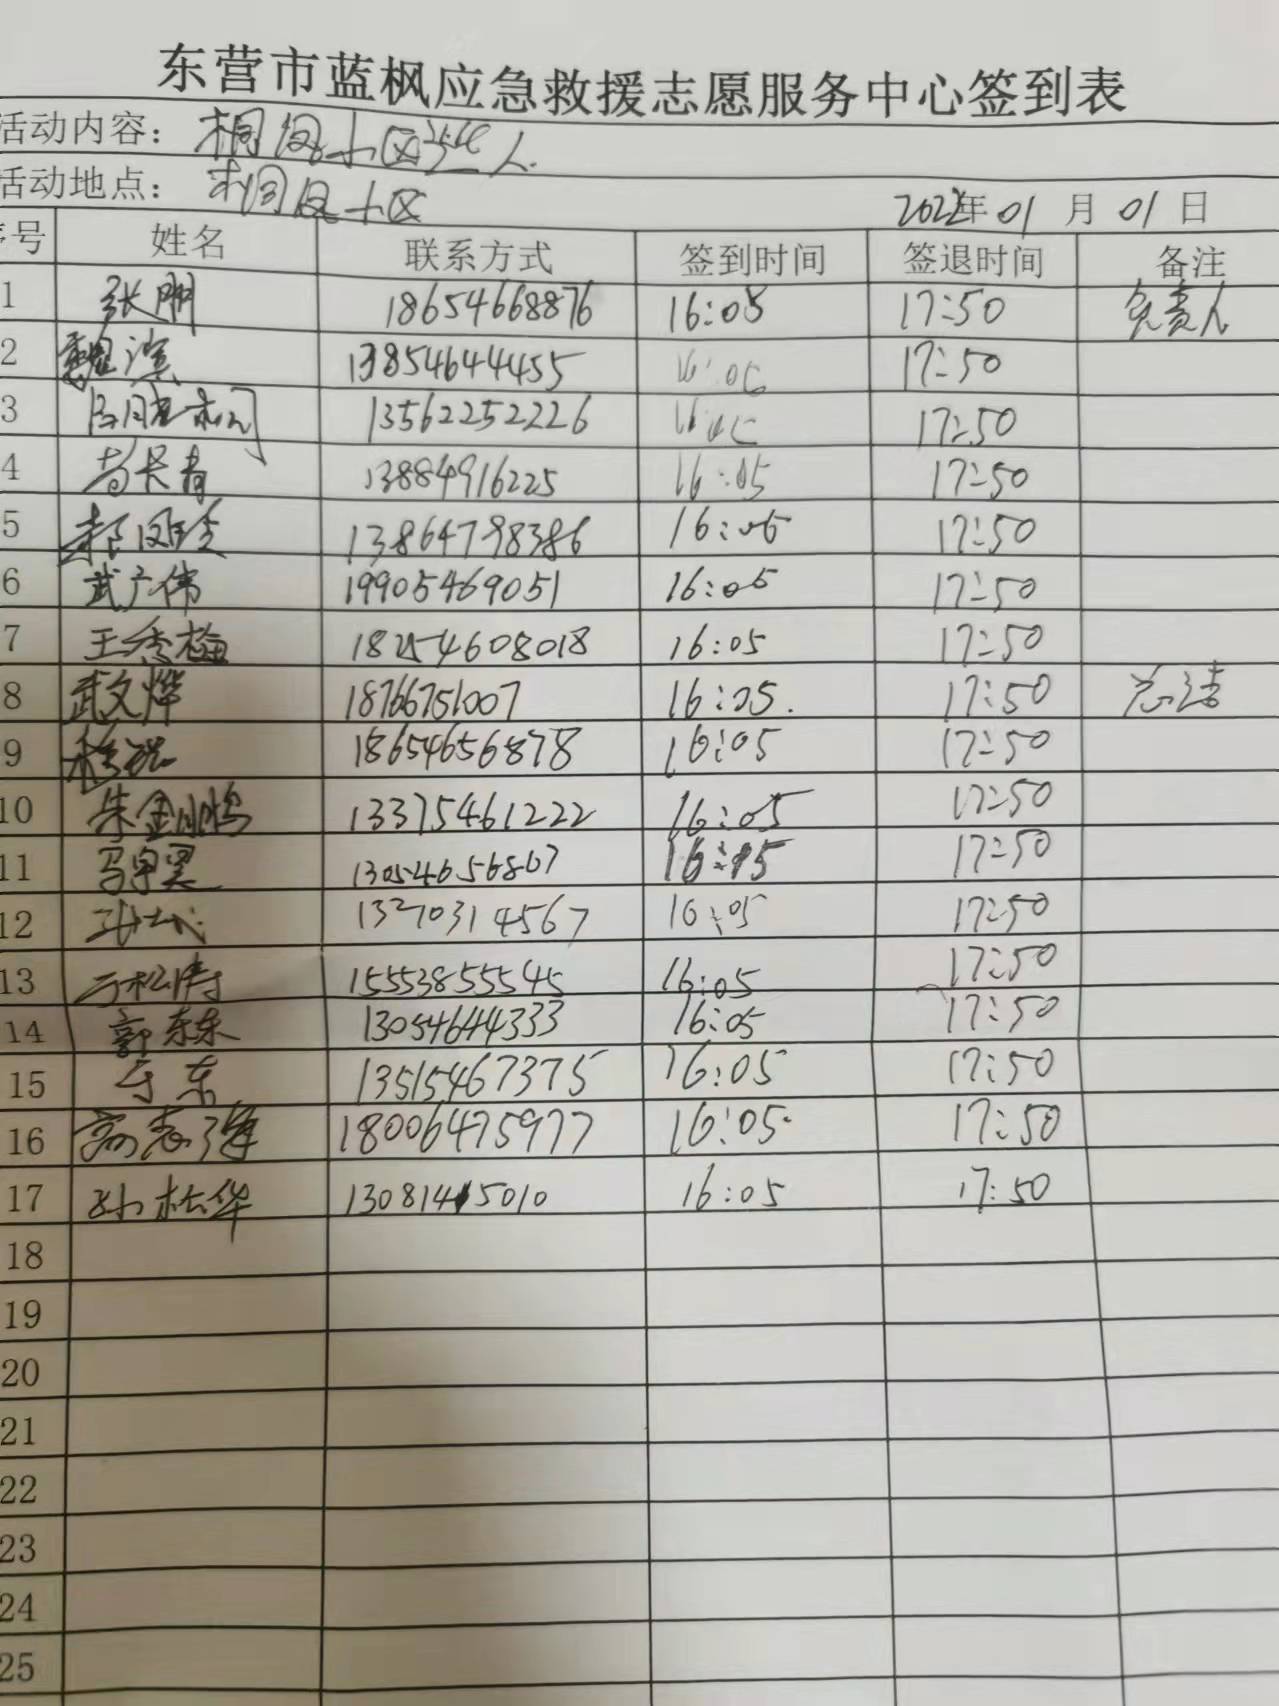 东营市蓝枫应急救援志愿服务中心签到表
活动内容：桐凤小区 人
活动地点：桐凤小区 2022年01月01日
序号 姓名 联系方式 签到时间 签退时间 备注
1 张鹏 18654668876 16:05 17:50 负责人
2 魏滨 13854644455 16:05 17:50
3 13562252226 17:50
4 尚长青 13884916225 16:05 17:50
5 郝凤玲 13864798386 16:05 17:50
6 武广伟 19905469051 16:05 17:50
7 王秀梅 18254608018 16:05 17:50
8 武文烨 18766751007 16:05. 17:50 总结
9 18654656878 16:05 17:50
10 朱金鹏 13375461222 16:05 17:50
11 马宇昊 13054656867 16:05 17:50
12 13270314567 16:05 17:50
13 于松涛 15553855545 16:05 17:50
14 郭东东 13054644333 16:05 17:50
15 于东 13515467375 16:05 17:50
16 高志强 18006475977 16:05 17:50
17 孙松华 13081415010 16:05 17:50
18
19
20
21
22
23
24
25